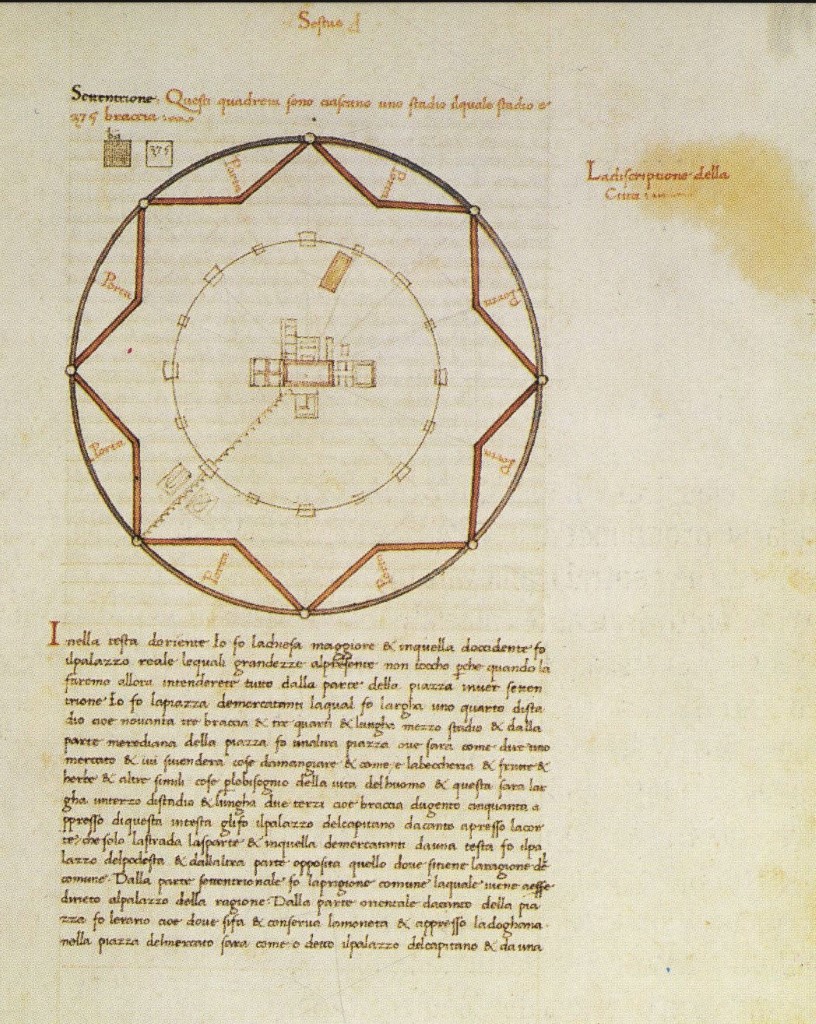 Sextus
Settentrione. Questi quadretti sono ciascuno uno stadio ilquale stadio e
375 braccia
375
Ladiscriptione della
Citta
Porta
Porta
Porta
Porta
Porta
Porta
Porta
Porta
Inella testa doriente Io fo lachiesa maggiore & inquella doccidente fo
ilpalazzo reale lequali grandezze alpresente non toccho perche quando la
faremo allora intenderete tutto dalla parte della piazza inver setten
trione Io fo lapiazza demercatanti laqual fo largha uno quarto dista
dio cioe novanta tre braccia & tre quarti & lungha mezzo stadio & dalla
parte meridiana della piazza fo unaltra piazza ove sara come dire uno
mercato & ivi sivendera cose damangiare & come e labeccheria & frutte &
herbe & altre simili cose perlobisogno della vita delhuomo & questa sara lar
gha unterzo distadio & lungha due terzi cioe braccia dugento cinquanta a
ppresso diquesta intesta glifo ilpalazzo delcapitano dacanto apresso lacor
te che solo lastrada lasparte & inquella demercatanti dauna testa fo ilpa
lazzo delpodesta & dallaltra parte opposita quello dove sitiene laragione del
comune. Dalla parte settentrionale fo laprigione comune laquale viene aesse
dirieto alpalazzo della ragione. Dalla parte orientale dacanto della pia
zza fo lerario cioe dove sifa & conserva lamoneta & appresso ladoghana.
nella piazza delmercato sara come o detto ilpalazzo delcapitano & da una